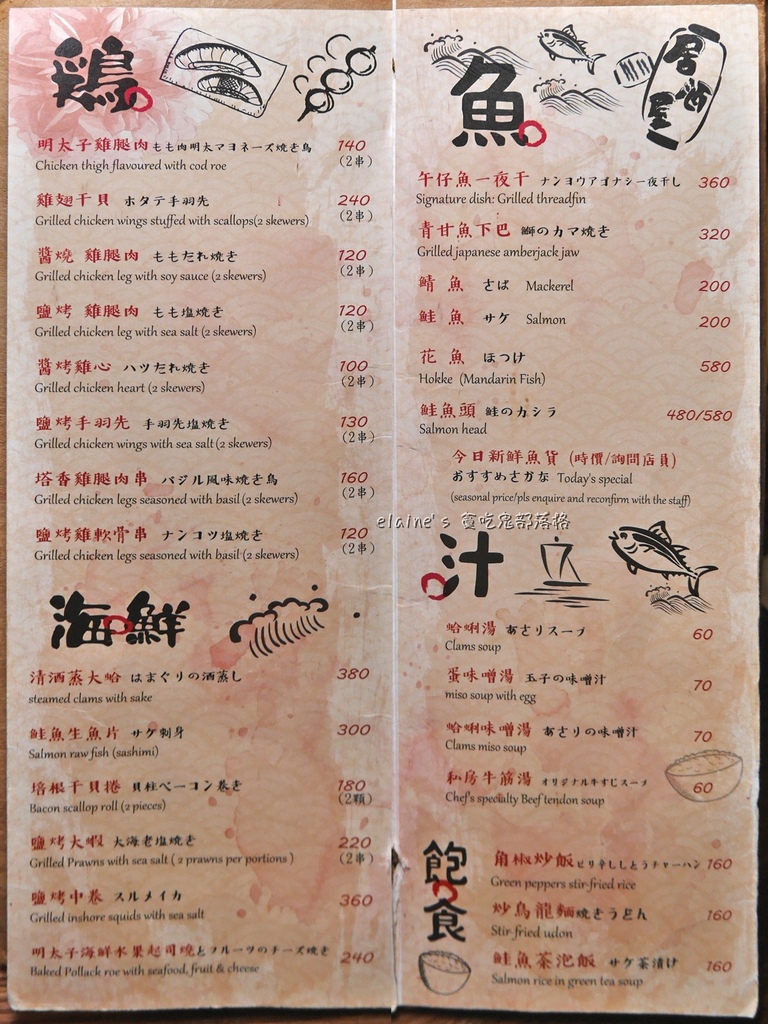 鶏
明太子雞腿肉 もも肉明太マヨネーズ焼き鳥 140
Chicken thigh flavoured with cod roe (2串)
雞翅干貝 ホタテ手羽先 240
Grilled chicken wings stuffed with scallops(2 skewers) (2串)
醬燒 雞腿肉 ももたれ焼き 120
Grilled chicken leg with soy sauce (2 skewers) (2串)
鹽烤 雞腿肉 もも塩焼き 120
Grilled chicken leg with sea salt (2 skewers) (2串)
醬烤雞心 ハツたれ焼き 100
Grilled chicken heart (2 skewers) (2串)
鹽烤手羽先 手羽先塩焼き 130
Grilled chicken wings with sea salt (2 skewers) (2串)
塔香雞腿肉串 バジル風味焼き鳥 160
Grilled chicken legs seasoned with basil (2 skewers) (2串)
鹽烤雞軟骨串 ナンコツ塩焼き 120
Grilled chicken legs seasoned with basil (2 skewers) (2串)
海鮮
清酒蒸大蛤 はまぐりの酒蒸し 380
steamed clams with sake
鮭魚生魚片 サケ刺身 300
Salmon raw fish (sashimi)
培根干貝捲 貝柱ベーコン巻き 180
Bacon scallop roll (2 pieces) (2顆)
鹽烤大蝦 大海老塩焼き 220
Grilled Prawns with sea salt ( 2 prawns per portions ) (2串)
鹽烤中卷 スルメイカ 360
Grilled inshore squids with sea salt
明太子海鮮水果起司燒 とフルーツのチーズ焼き 240
Baked Pollack roe with seafood, fruit & cheese
魚
居酒屋
午仔魚一夜干 ナンヨウアゴナシ一夜干し 360
Signature dish: Grilled threadfin
青甘魚下巴 鰤のカマ焼き 320
Grilled japanese amberjack jaw
鯖魚 さば Mackerel 200
鮭魚 サケ Salmon 200
花魚 ほっけ 580
Hokke (Mandarin Fish)
鮭魚頭 鮭のカシラ 480/580
Salmon head
今日新鮮魚貨 (時價/詢問店員)
おすすめさかな Today's special
(seasonal price/pls enquire and reconfirm with the staff)
elaine's 貪吃鬼部落格
汁
蛤蜊湯 あさりスープ 60
Clams soup
蛋味噌湯 玉子の味噌汁 70
miso soup with egg
蛤蜊味噌湯 あさりの味噌汁 70
Clams miso soup
私房牛筋湯 オリジナル牛すじスープ 60
Chef's specialty Beef tendon soup
飽食
角椒炒飯 ピリ辛ししとうチャーハン 160
Green peppers stir-fried rice
炒烏龍麵 焼きうどん 160
Stir-fried udon
鮭魚茶泡飯 サケ茶漬け 160
Salmon rice in green tea soup